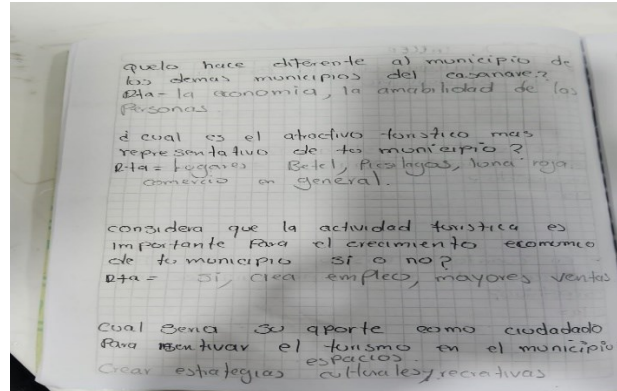 quelo hace diferente al municipio de
los demas municipios del casanare?
Rta- la economia, la amabilidad de las
Personas
¿ cual es el atractivo turistico mas
representativo de tu municipio?
Rta= hogares Betel, Piestagos, luna roja
comercio en general.
considera que la actividad turistica es
importante Para el crecimiento economico
de tu municipio si o no?
Rta= si, crea empleo, mayores ventas
cual seria su aporte como ciudadado
Para el turismo en el municipio
espacios.
Crear estrategias culturales y recreativas